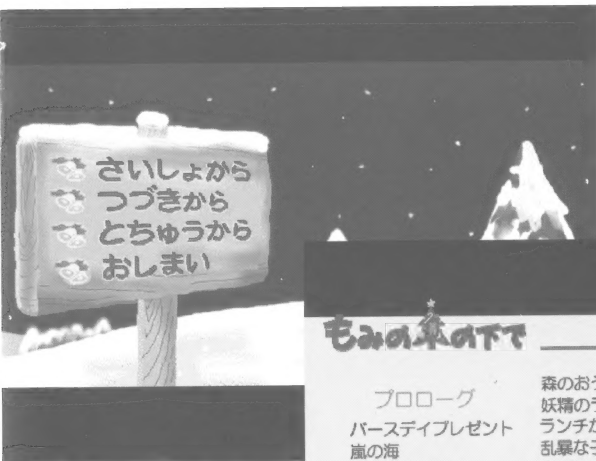 さいしょから
つづきから
とちゅうから
おしまい
もみの木の下で
プロローグ
バースデイプレゼント
嵐の海
森のお
妖精の
ランチが
乱暴な